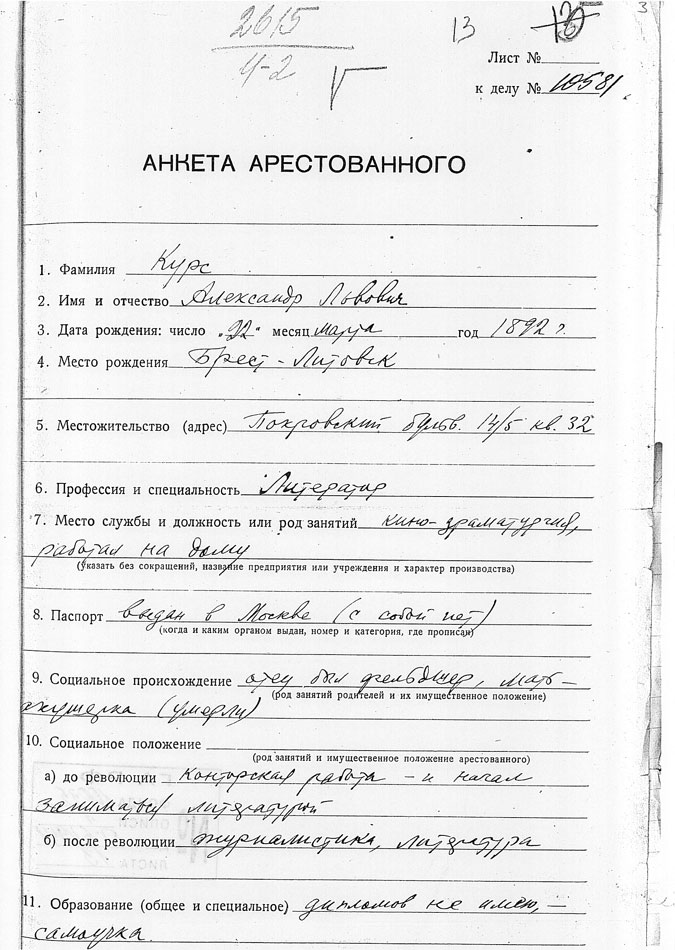 2615
4-2
13
3
Лист №
к делу № 10581
АНКЕТА АРЕСТОВАННОГО
1. Фамилия Курс
2. Имя и отчество Александр Львович
3. Дата рождения: число „22“ месяц марта год 1892 г.
4. Место рождения Брест-Литовск
5. Местожительство (адрес) Покровский бульв. 14/5 кв. 32
6. Профессия и специальность Литератор
7. Место службы и должность или род занятий кино-драматургия,
работал на дому
(указать без сокращений, название предприятия или учреждения и характер производства)
8. Паспорт выдан в Москве (с собой нет)
(когда и каким органом выдан, номер и категория, где прописан)
9. Социальное происхождение отец был фельдшер, мать –
(род занятий родителей и их имущественное положение)
акушерка (умерли)
10. Социальное положение
(род занятий и имущественное положение арестованного)
а) до революции Конторская работа – и начал
заниматься литературой
б) после революции журналистика, литература
11. Образование (общее и специальное) дипломов не имею, –
самоучка.